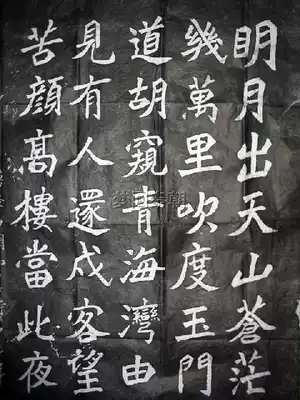 明月出天山蒼茫
幾萬里吹度玉門
道胡窺青海灣由
見有人還戍客望
苦顏高樓當此夜